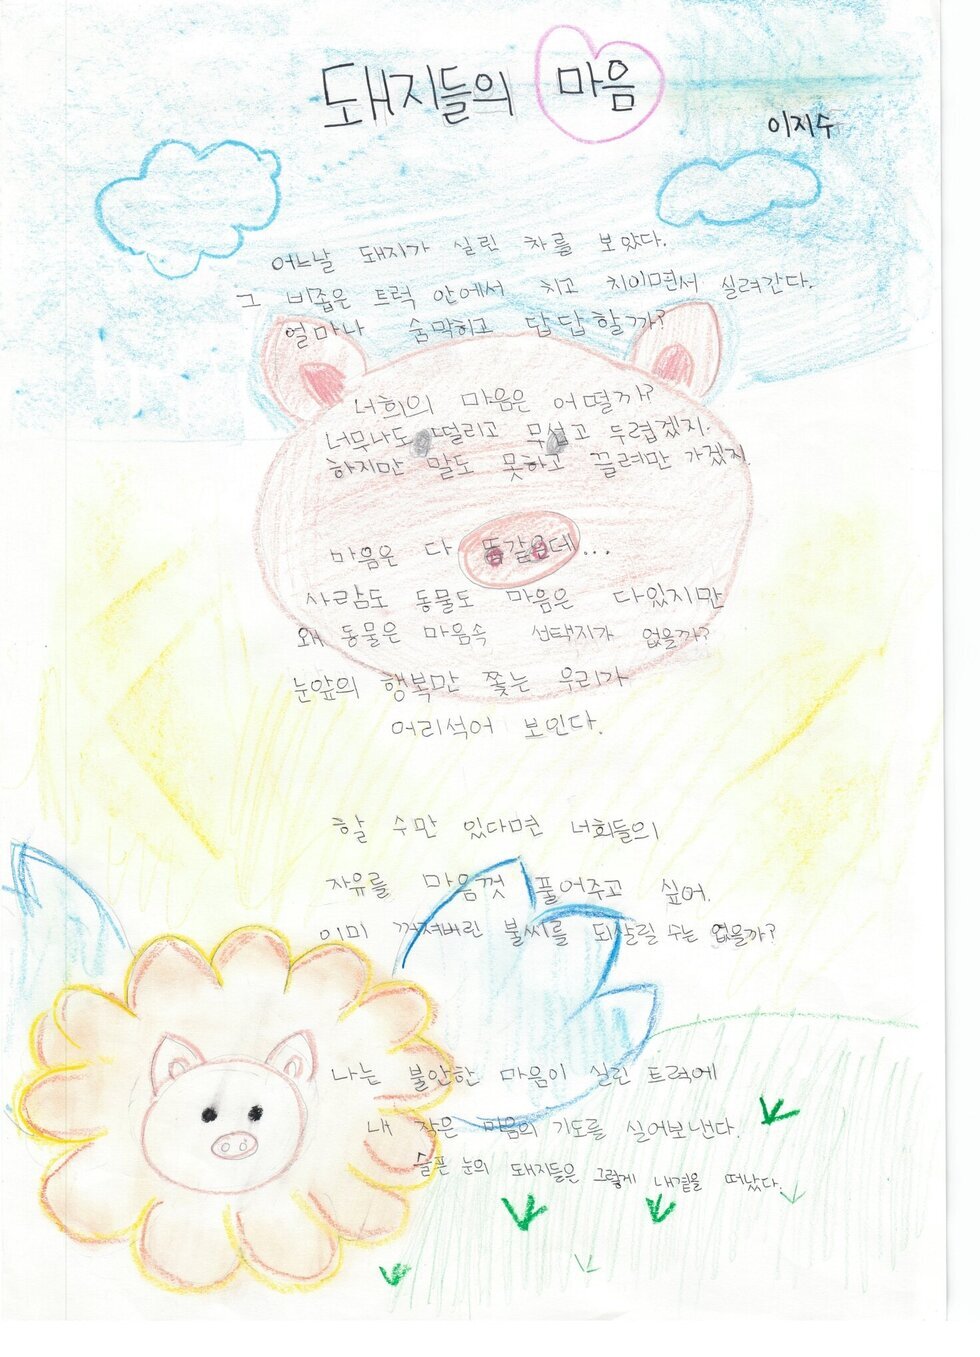 돼지들의 마음
이지수
어느날 돼지가 실린 차를 보았다.
그 비좁은 트럭 안에서 치고 치이면서 실려간다.
얼마나 숨막히고 답답할까?
너희의 마음은 어떨까?
너무나도 떨리고 무섭고 두렵겠지.
하지만 말도 못하고 끌려만 가겠지.
마음은 다 똑같은데...
사람도 동물도 마음은 다있지만
왜 동물은 마음속 선택지가 없을까?
눈앞의 행복만 쫓는 우리가
어리석어 보인다.
할 수만 있다면 너희들의
자유를 마음껏 풀어주고 싶어.
이미 꺼져버린 불씨를 되살릴 수는 없을까?
나는 불안한 마음이 실린 트럭에
내 작은 마음의 기도를 실어보낸다.
슬픈 눈의 돼지들은 그렇게 내곁을 떠났다.